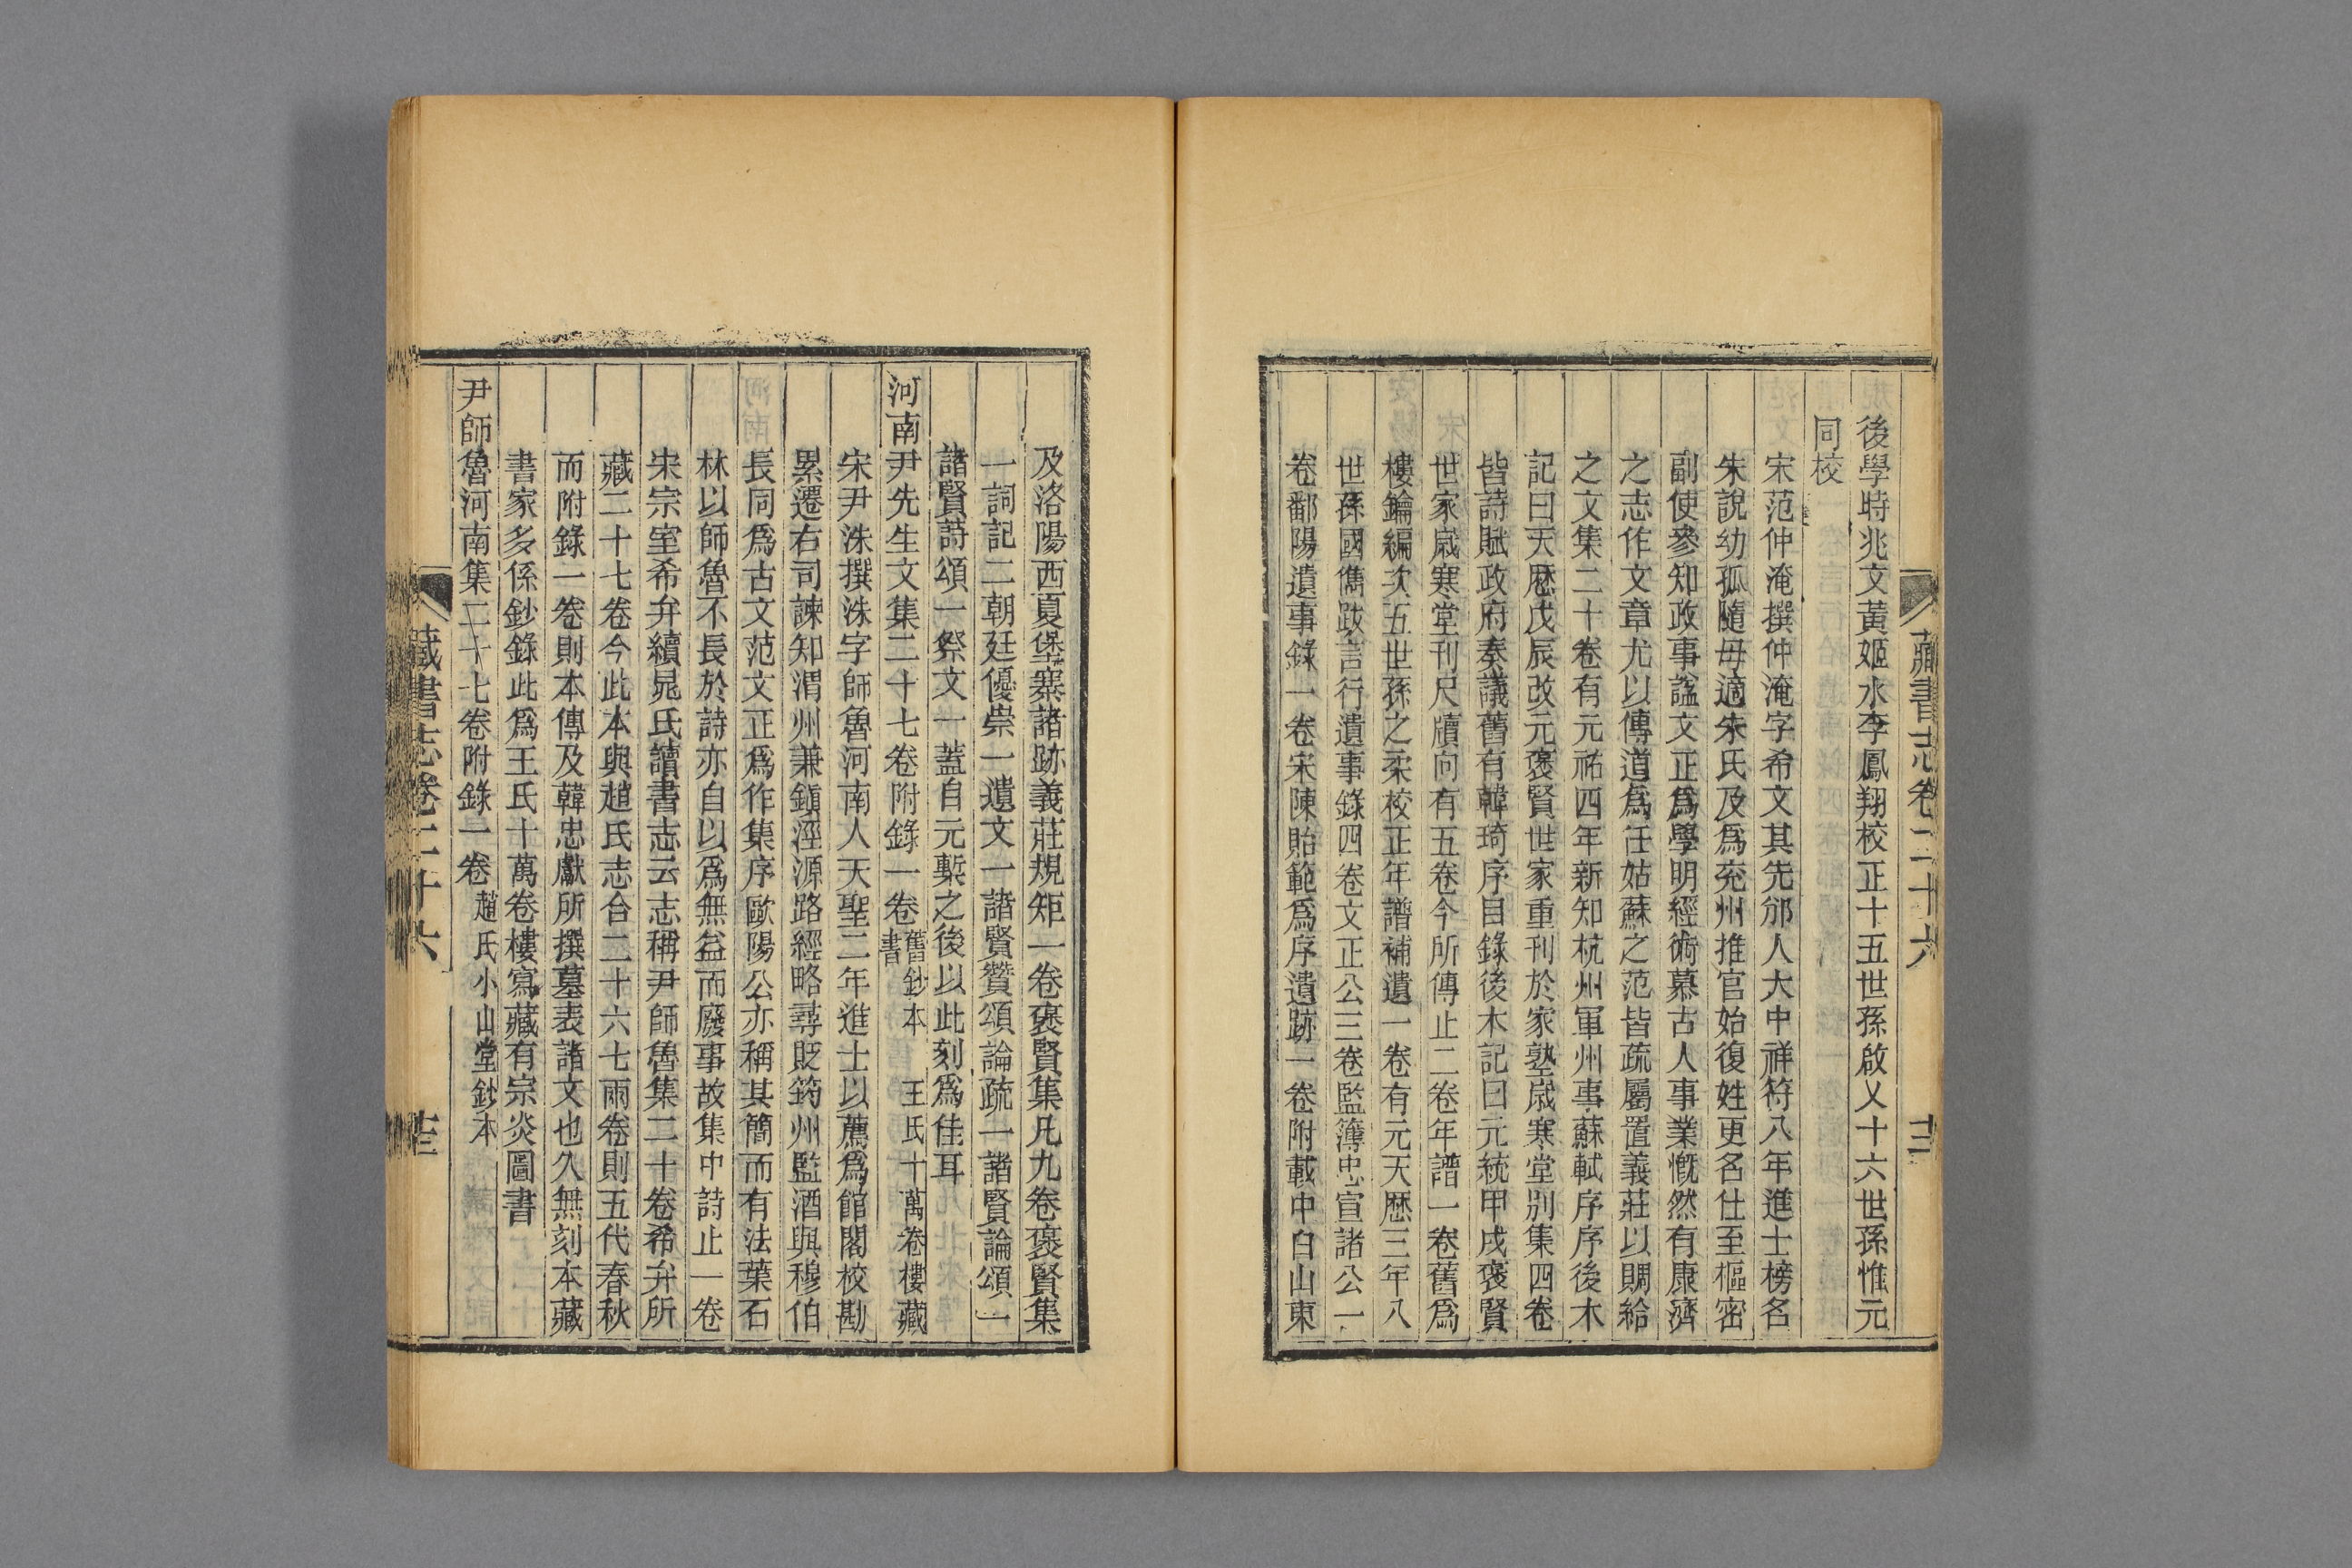 藏書志卷二十六 十二
後學時兆文黃姬水李鳳翔校正十五世孫啟乂十六世孫惟元
同校
宋范仲淹撰仲淹字希文其先邠人大中祥符八年進士榜名
朱說幼孤隨母適朱氏及爲兖州推官始復姓更名仕至樞密
副使參知政事諡文正爲學明經術慕古人事業慨然有康濟
之志作文章尤以傳道爲任姑蘇之范皆疏屬置義莊以賙給
之文集二十卷有元祐四年新知杭州軍州事蘇軾序序後木
記曰天歷戊辰改元褒賢世家重刊於家塾歲寒堂別集四卷
皆詩賦政府奏議舊有韓琦序目錄後木記曰元統甲戌褒賢
世家歲寒堂刊尺牘向有五卷今所傳止二卷年譜一卷舊爲
樓鑰編次五世孫之柔校正年譜補遺一卷有元天歷三年八
世孫國儁跋言行遺事錄四卷文正公三卷監簿忠宣諸公一
卷鄱陽遺事錄一卷宋陳貽範爲序遺跡一卷附載中白山東
及洛陽西夏堡寨諸跡義莊規矩一卷褒賢集凡九卷褒賢集
一詞記二朝廷優崇一遺文一諸賢贊頌論疏一諸賢論頌一
諸賢詩頌一祭文一蓋自元槧之後以此刻爲佳耳
河南尹先生文集二十七卷附錄一卷舊鈔本 王氏十萬卷樓藏書
宋尹洙撰洙字師魯河南人天聖二年進士以薦爲館閣校勘
累遷右司諫知渭州兼鎮涇源路經略尋貶筠州監酒與穆伯
長同爲古文范文正爲作集序歐陽公亦稱其簡而有法葉石
林以師魯不長於詩亦自以爲無益而廢事故集中詩止一卷
宋宗室希弁續晁氏讀書志云志稱尹師魯集二十卷希弁所
藏二十七卷今此本與趙氏志合二十六七兩卷則五代春秋
而附錄一卷則本傳及韓忠獻所撰墓表諸文也久無刻本藏
書家多係鈔錄此爲王氏十萬卷樓寫藏有宗炎圖書
尹師魯河南集二十七卷附錄一卷趙氏小山堂鈔本
藏書志卷二十六 十三